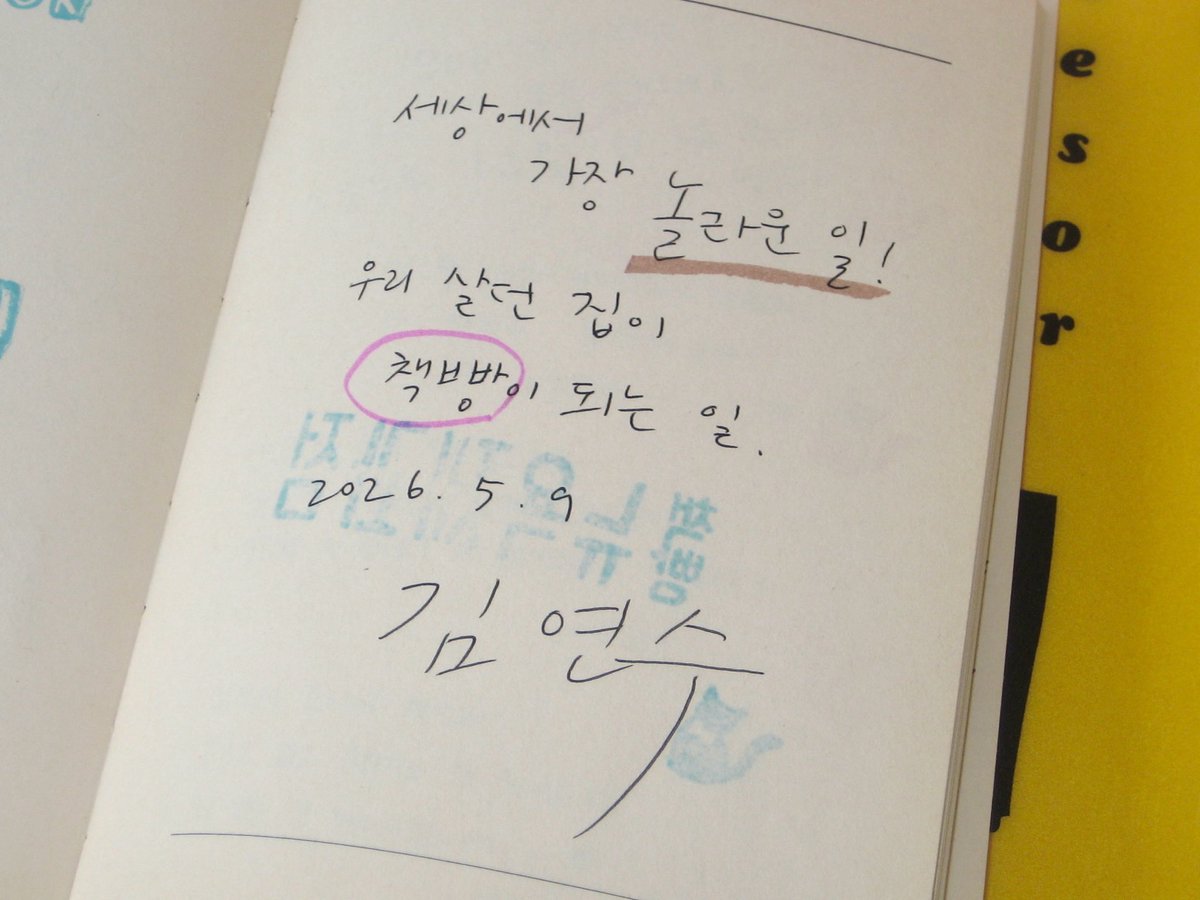 세상에서
가장 놀라운 일!
우리 살던 집이
책방이 되는 일.
2026. 5. 9
김연수
e
s
o
r